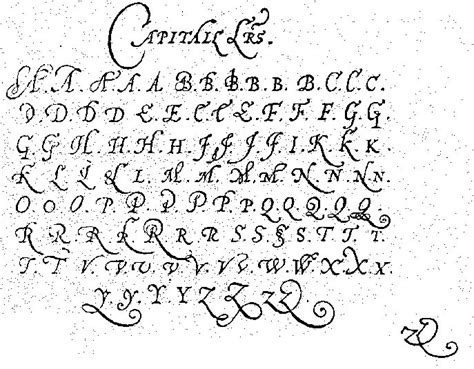 CAPITALL LRS.
A. A. A. A. A B. B. B. B. B. B. C. C. C.
D. D. D. D D E. E. E. E. F. F. F. G. G.
G. G H. H. H. H. J. J. J. J. I. K. K K.
K L L L L M. M. M. M N. N. N.
O O O. P. P. P. P. P. P. Q Q Q Q.
R. R. R. R R R. S. S. S. S T. T. T.
T. T V. V. V. V. V. V. W. W. X. X. X
y. y. Y Y Z Z. Z Z.
Z